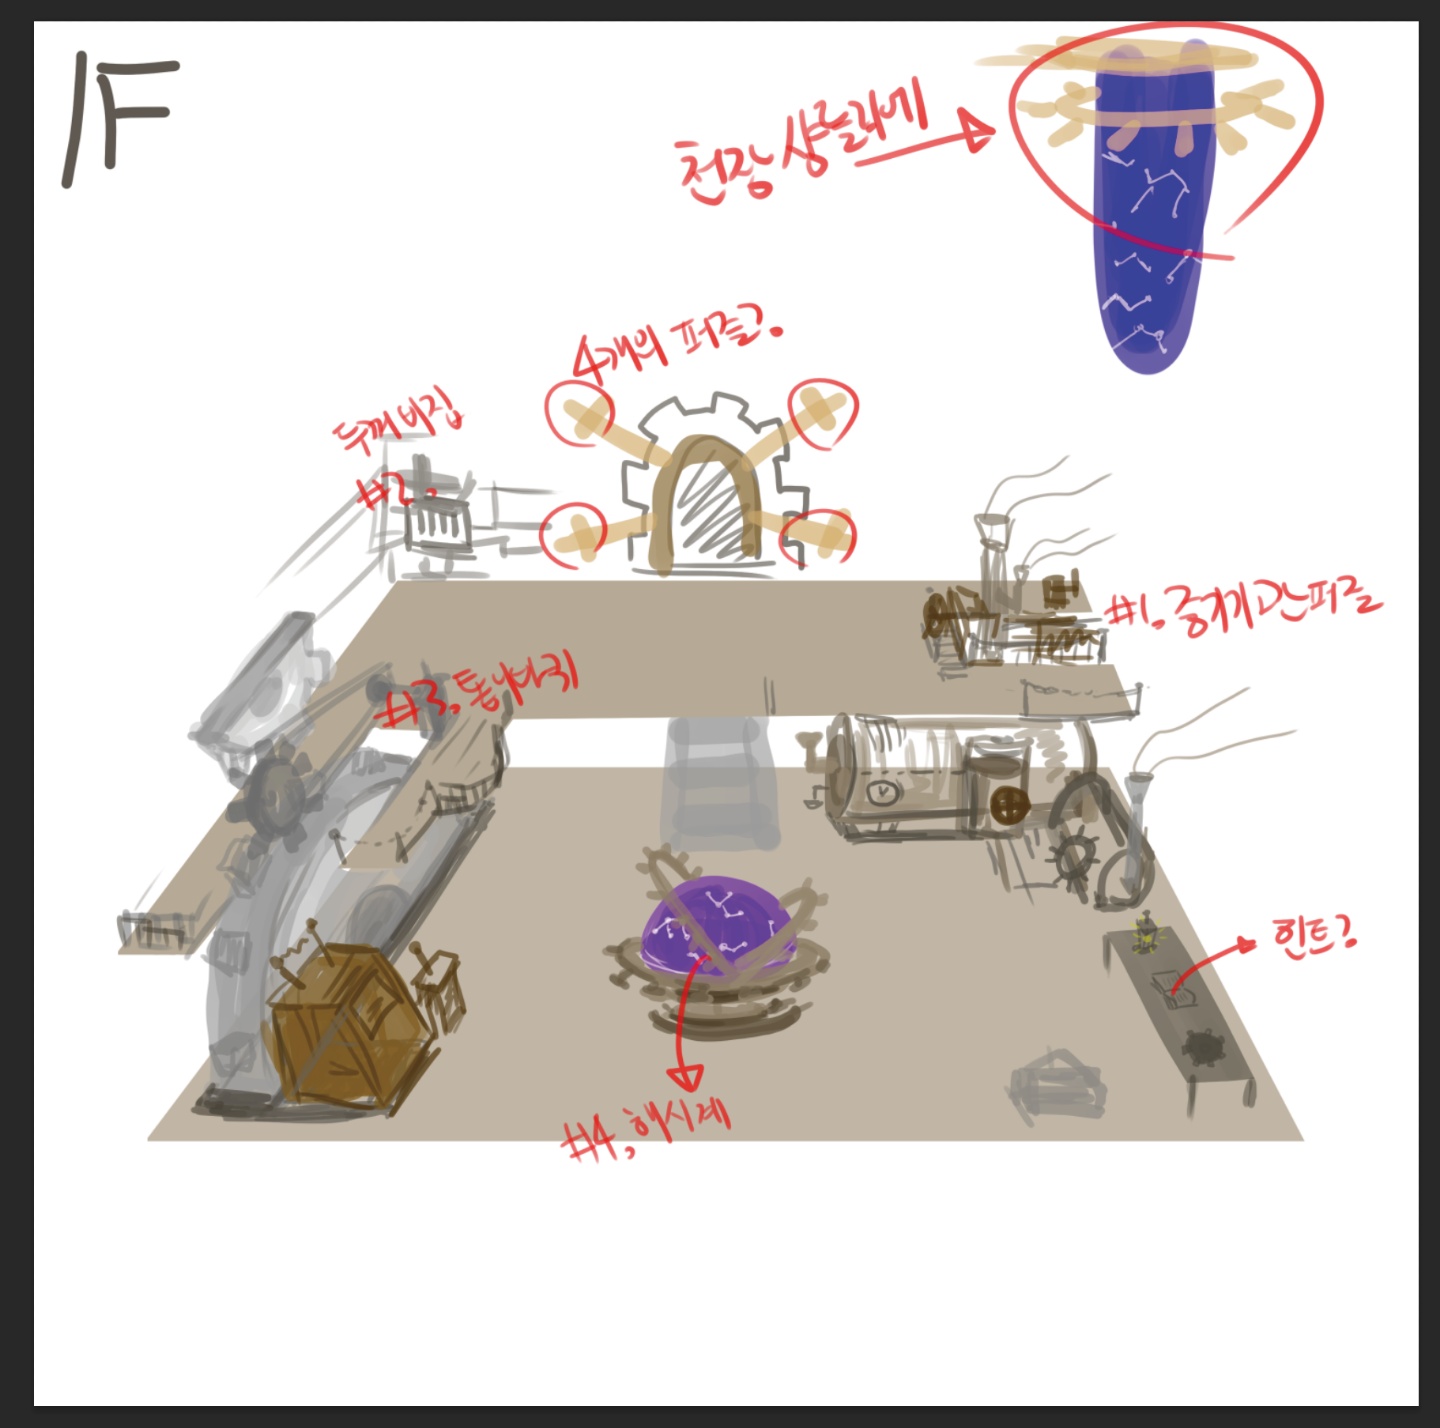 1F
천장 샹들리에
4개의 퍼즐?
두꺼비집
#2.
#1. 증기기관퍼즐
#3. 톱니바퀴
힌트?
#4, 해시계